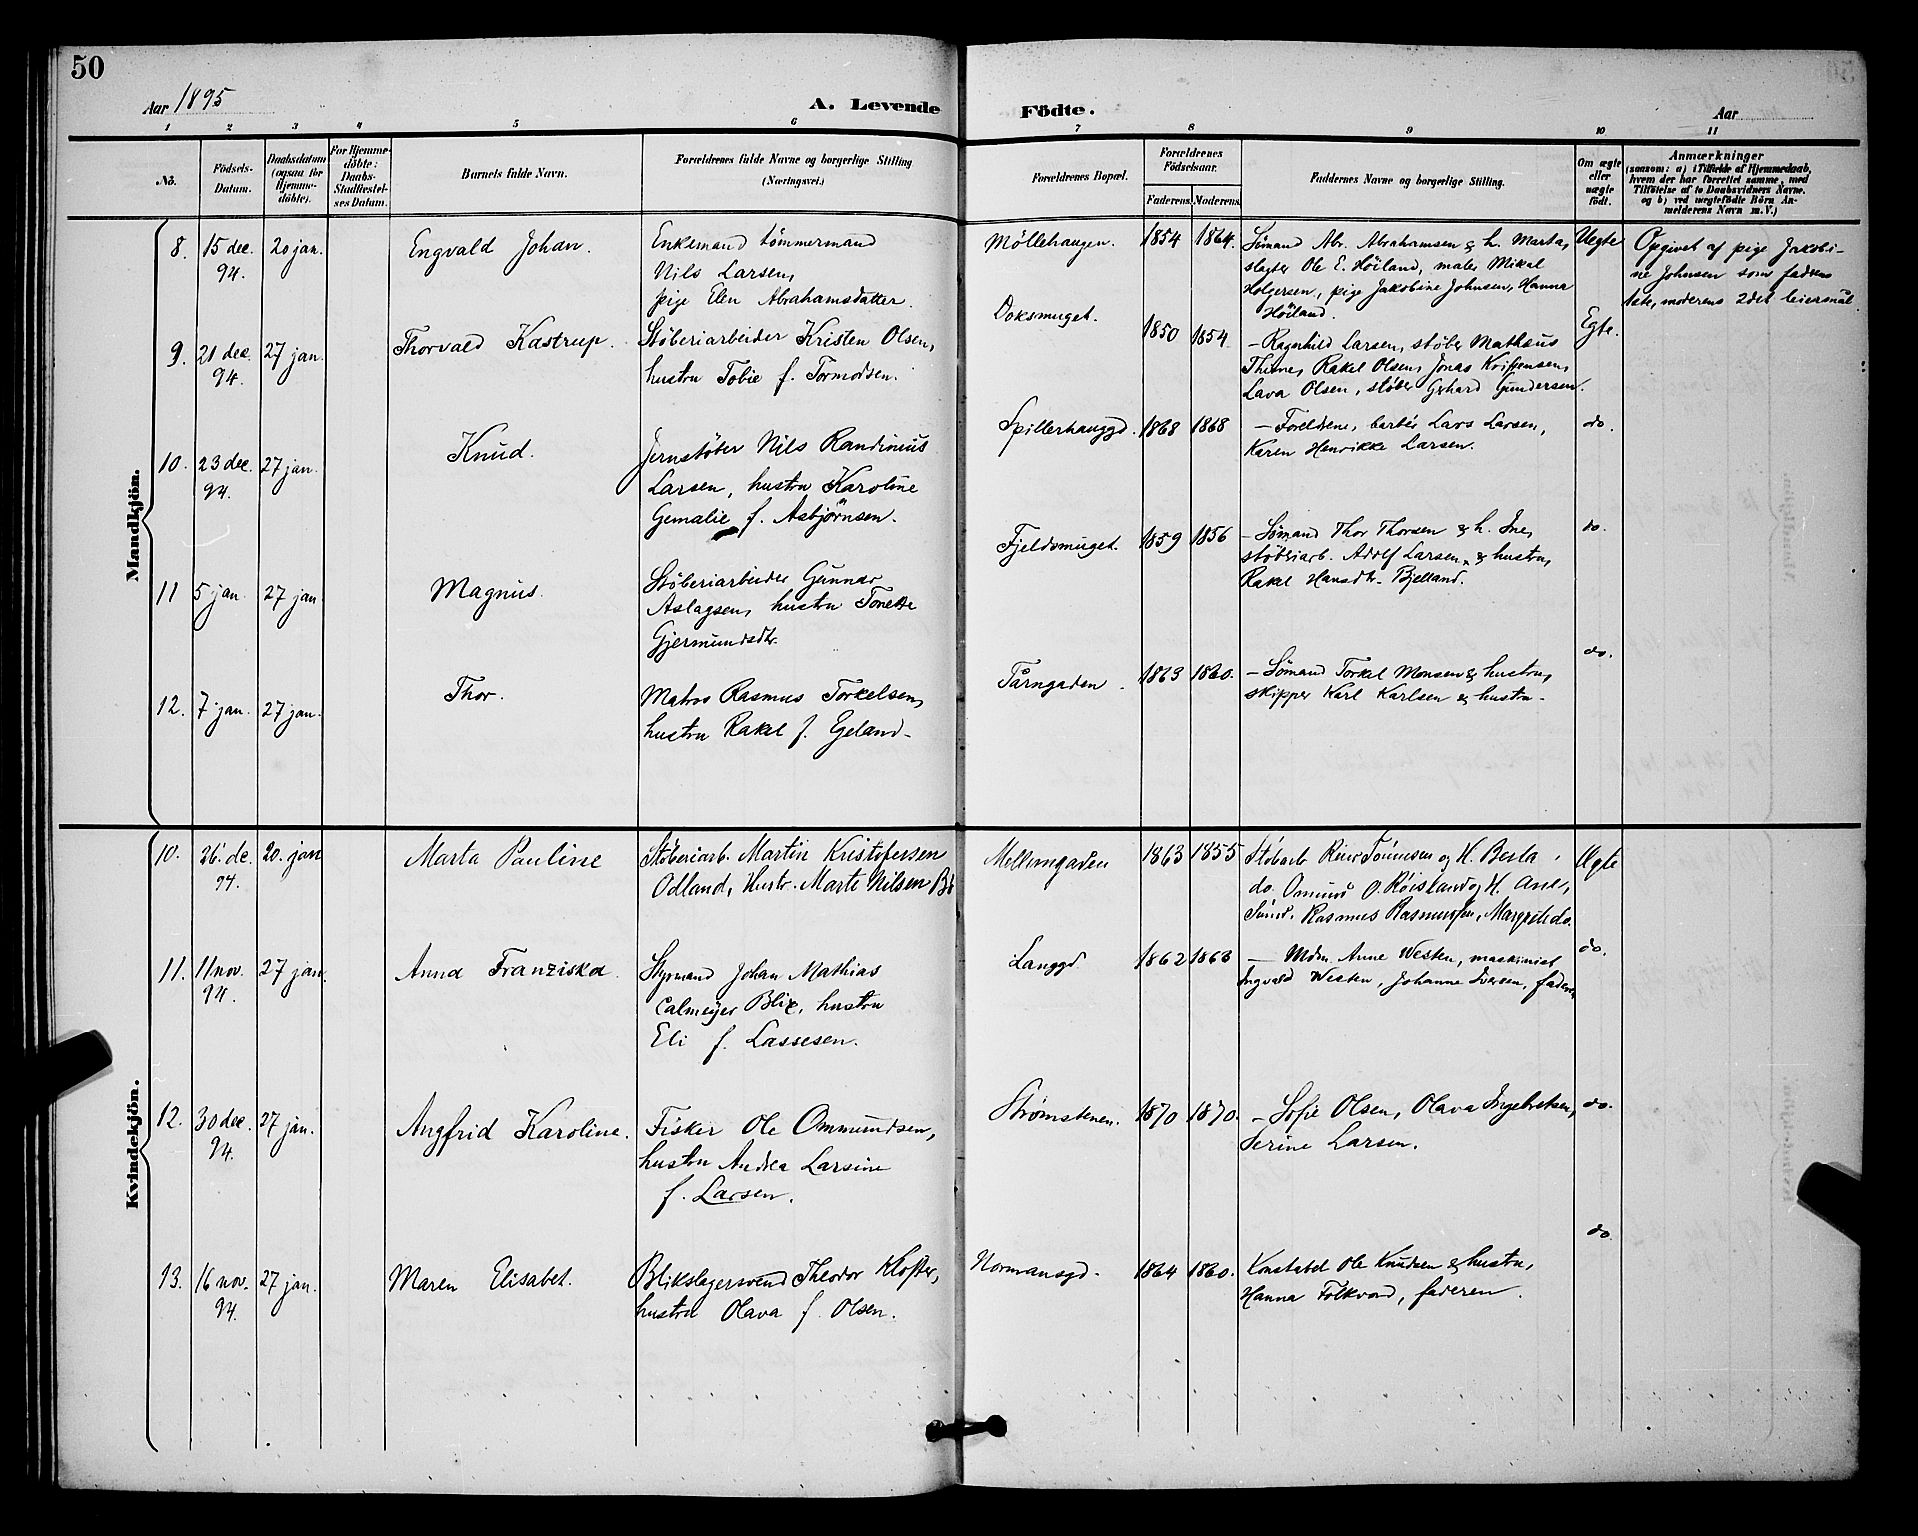 50
Aar 1895
A. Levende
Födte.
Aar
1 2 3 4 5 6 7 8 9 10 11
No.
Födsels-
Datum.
Daabsdatum
(ogsaa for
Hjemme-
döbte).
For Hjemme-
döbte:
Daabs-
Stadfæstel-
ses Datum.
Barnets fulde Navn.
Forældrenes fulde Navne og borgerlige Stilling
(Næringsvei.)
Forældrenes Bopæl.
Forældrenes
Födselsaar.
Faderens. Moderens.
Faddernes Navne og borgerlige Stilling.
Om ægte
eller
uægte
födt.
Anmærkninger
(saasom: a) i Tilfælde af Hjemmedaab,
hvem der har forrettet samme, med
Tilföielse af to Daabsvidners Navne.
og b) ved uægtefödte Börn An-
melderens Navn m. V.)
Mandkjön.
8. 15 dec. 94. 20 jan. Engvald Johan.
Enkemand tømmermand
Nils Larsen,
pige Elen Abrahamsdatter.
Möllehaugen. 1854 1864.
Sømand Abr. Abrahamsen & h. Marta,
slagter Ole E. Höiland, maler Mikal
Holgersen, pige Jakobine Johnsen, Hanna
Höiland.
Uegte
Opgivet af pige Jakobi-
ne Johnsen som fadrens
1ste, moderens 2det leiersmål
9. 21 dec. 94. 27 jan. Thorvald Kastrup.
Støberiarbeider Kristen Olsen,
hustru Tobie f. Tormodsen.
Doksmuget. 1850 1854.
- Ragnhild Larsen, støber Matheus
Thime, Rakel Olsen, Jonas
Lava Olsen, støber Gerhard Gundersen.
Egte.
10. 23 dec. 94. 27 jan. Knud.
Jernstøber Nils Randinius
Larsen, hustru Karoline
Gemalie f. Asbjørnsen.
Spillerhauggd. 1868 1868
- Foreldrene, barbér Lars Larsen,
Karen Henrikke Larsen.
do.
11 5 jan. 27 jan Magnus.
Støberiarbeider Gunnar
Aslagsen, hustru Tonette
Gjermundsdtr.
Fjeldsmuget. 1859 1856
- Sømand Thor Thorsen & h. Ine,
støberiarb. Adolf Larsen & hustru,
Rakel Hansdtr. Bjelland.
do.
12. 7 jan. 27 jan. Thor.
Matros Rasmus Torkelsen,
hustru Rakel f. Egeland-
Tårngaden. 1863 1860.
- Sømand Torkel Monsen & hustru,
skipper Karl Karlsen & hustru-
do.
Kvindekjön.
10. 26 de. 94. 20. jan Marta Pauline
Støberiarb. Martin Kristofersen
Odland, Hustr. Marte Nilsen
Mellemgaden 1863 1855
Støbarb og H. Berta,
do. Omund O. Røisland og H. Ane,
Rasmus Rasmussen, Margrete do.
Ægte
11. 11 nov. 94. 27 jan. Anna Franziska.
Styrmand Johan Mathias
Calmeyer Blix, hustru
Eli f. Lassesen.
Langgd. 1862 1863
- Mdm. Anne Westen, maskinist
Ingvald Westen, Johanne Iversen, faderen
do.
12. 30 dec. 94. 27 jan. Angfrid Karoline.
Fisker Ole Ommundsen,
hustru Andrea Larsine
f. Larsen.
Strømstenen. 1870 1870.
- Sofie Olsen, Olava Ingebretsen,
Serine Larsen.
do.
13. 16 nov. 94. 27 jan. Maren Elisabet.
Blikslagersvend Theodor Kloster,
hustru Olava f. Olsen.
Normansgd. 1864 1860.
Konstabel Ole Knudsen & hustru,
Hanna Folkvord, faderen.
do.